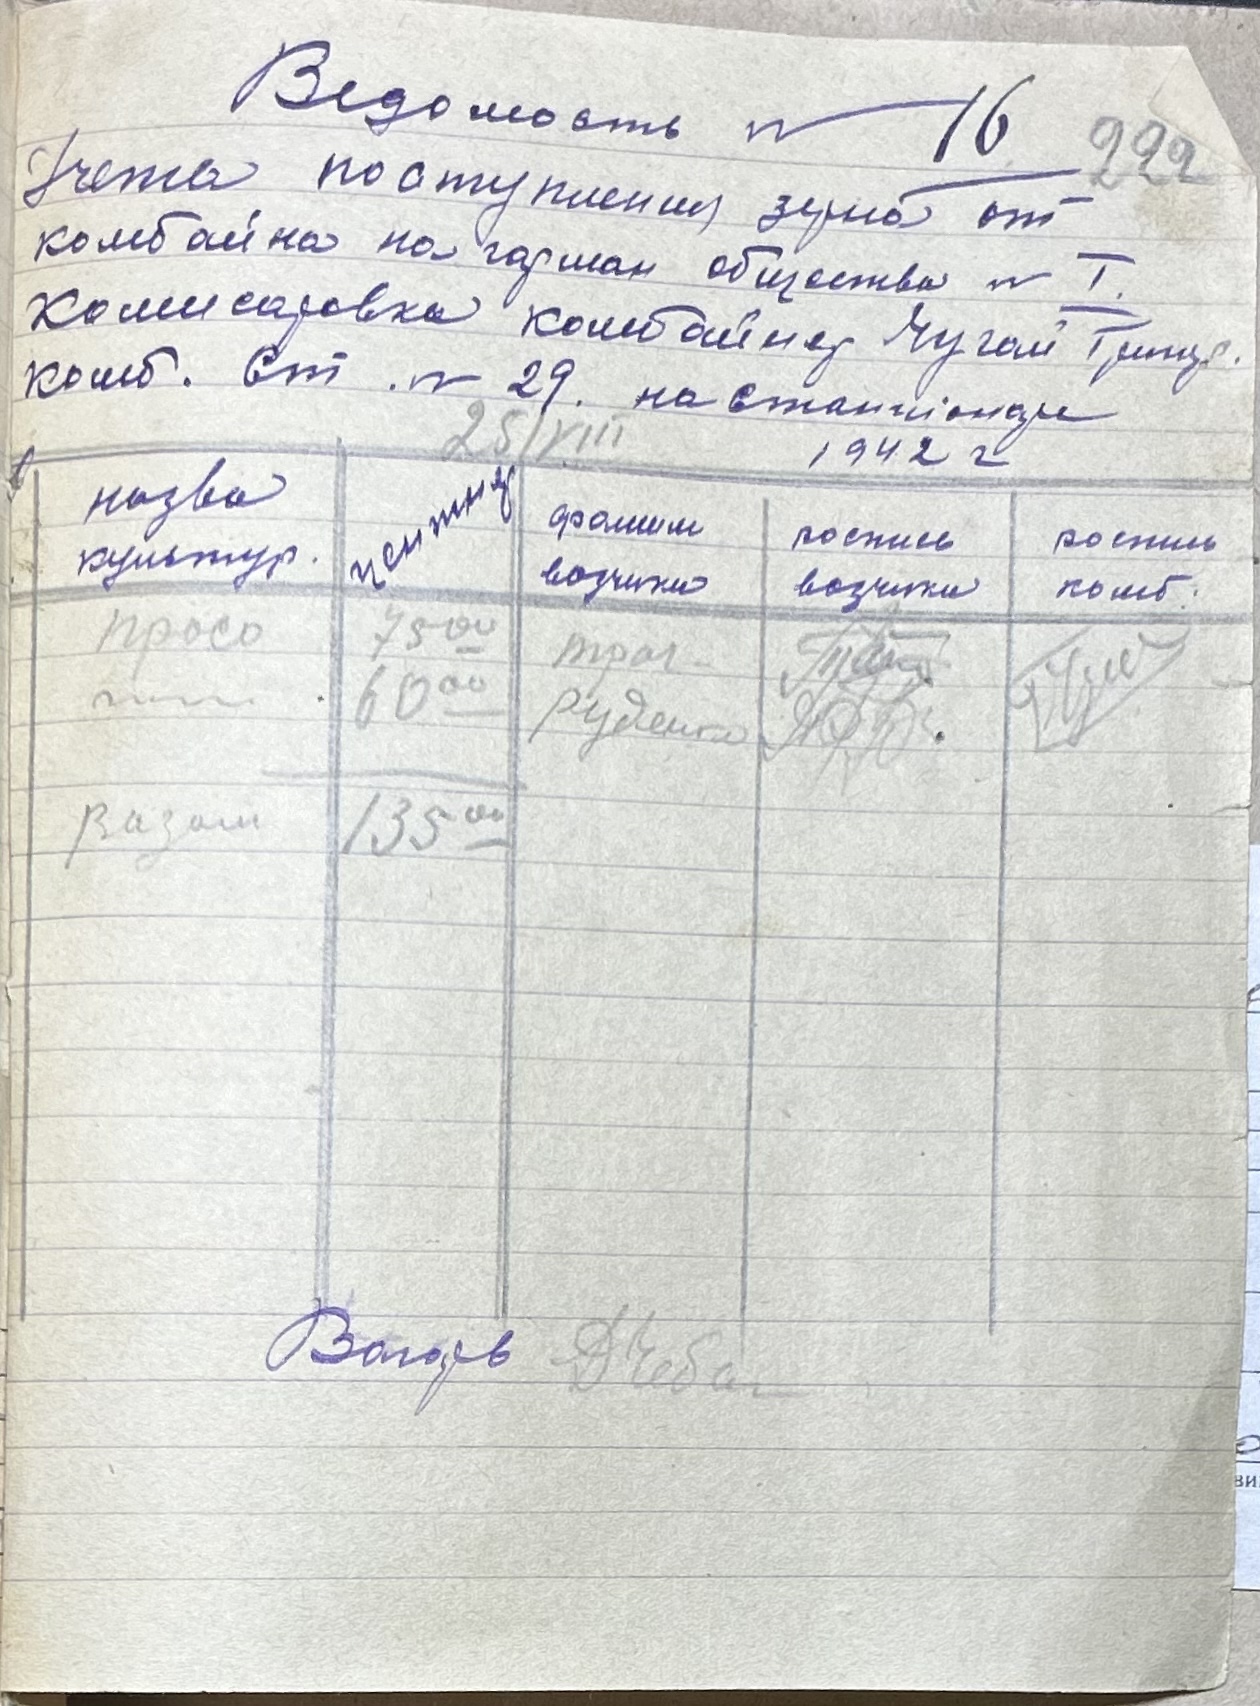 Ведомость № 16
222
Учета поступления зерна от
комбайна на гарман общества № I.
Комисаровка комбайнер Чугай Григор.
комб. Ст. № 29. на стационаре
25/VIII 1942 г
назва культур. центнер фамили возчика роспись возчика роспись комб.
просо 75 00
60 00 Руденко
Разом 135 00
Вагар